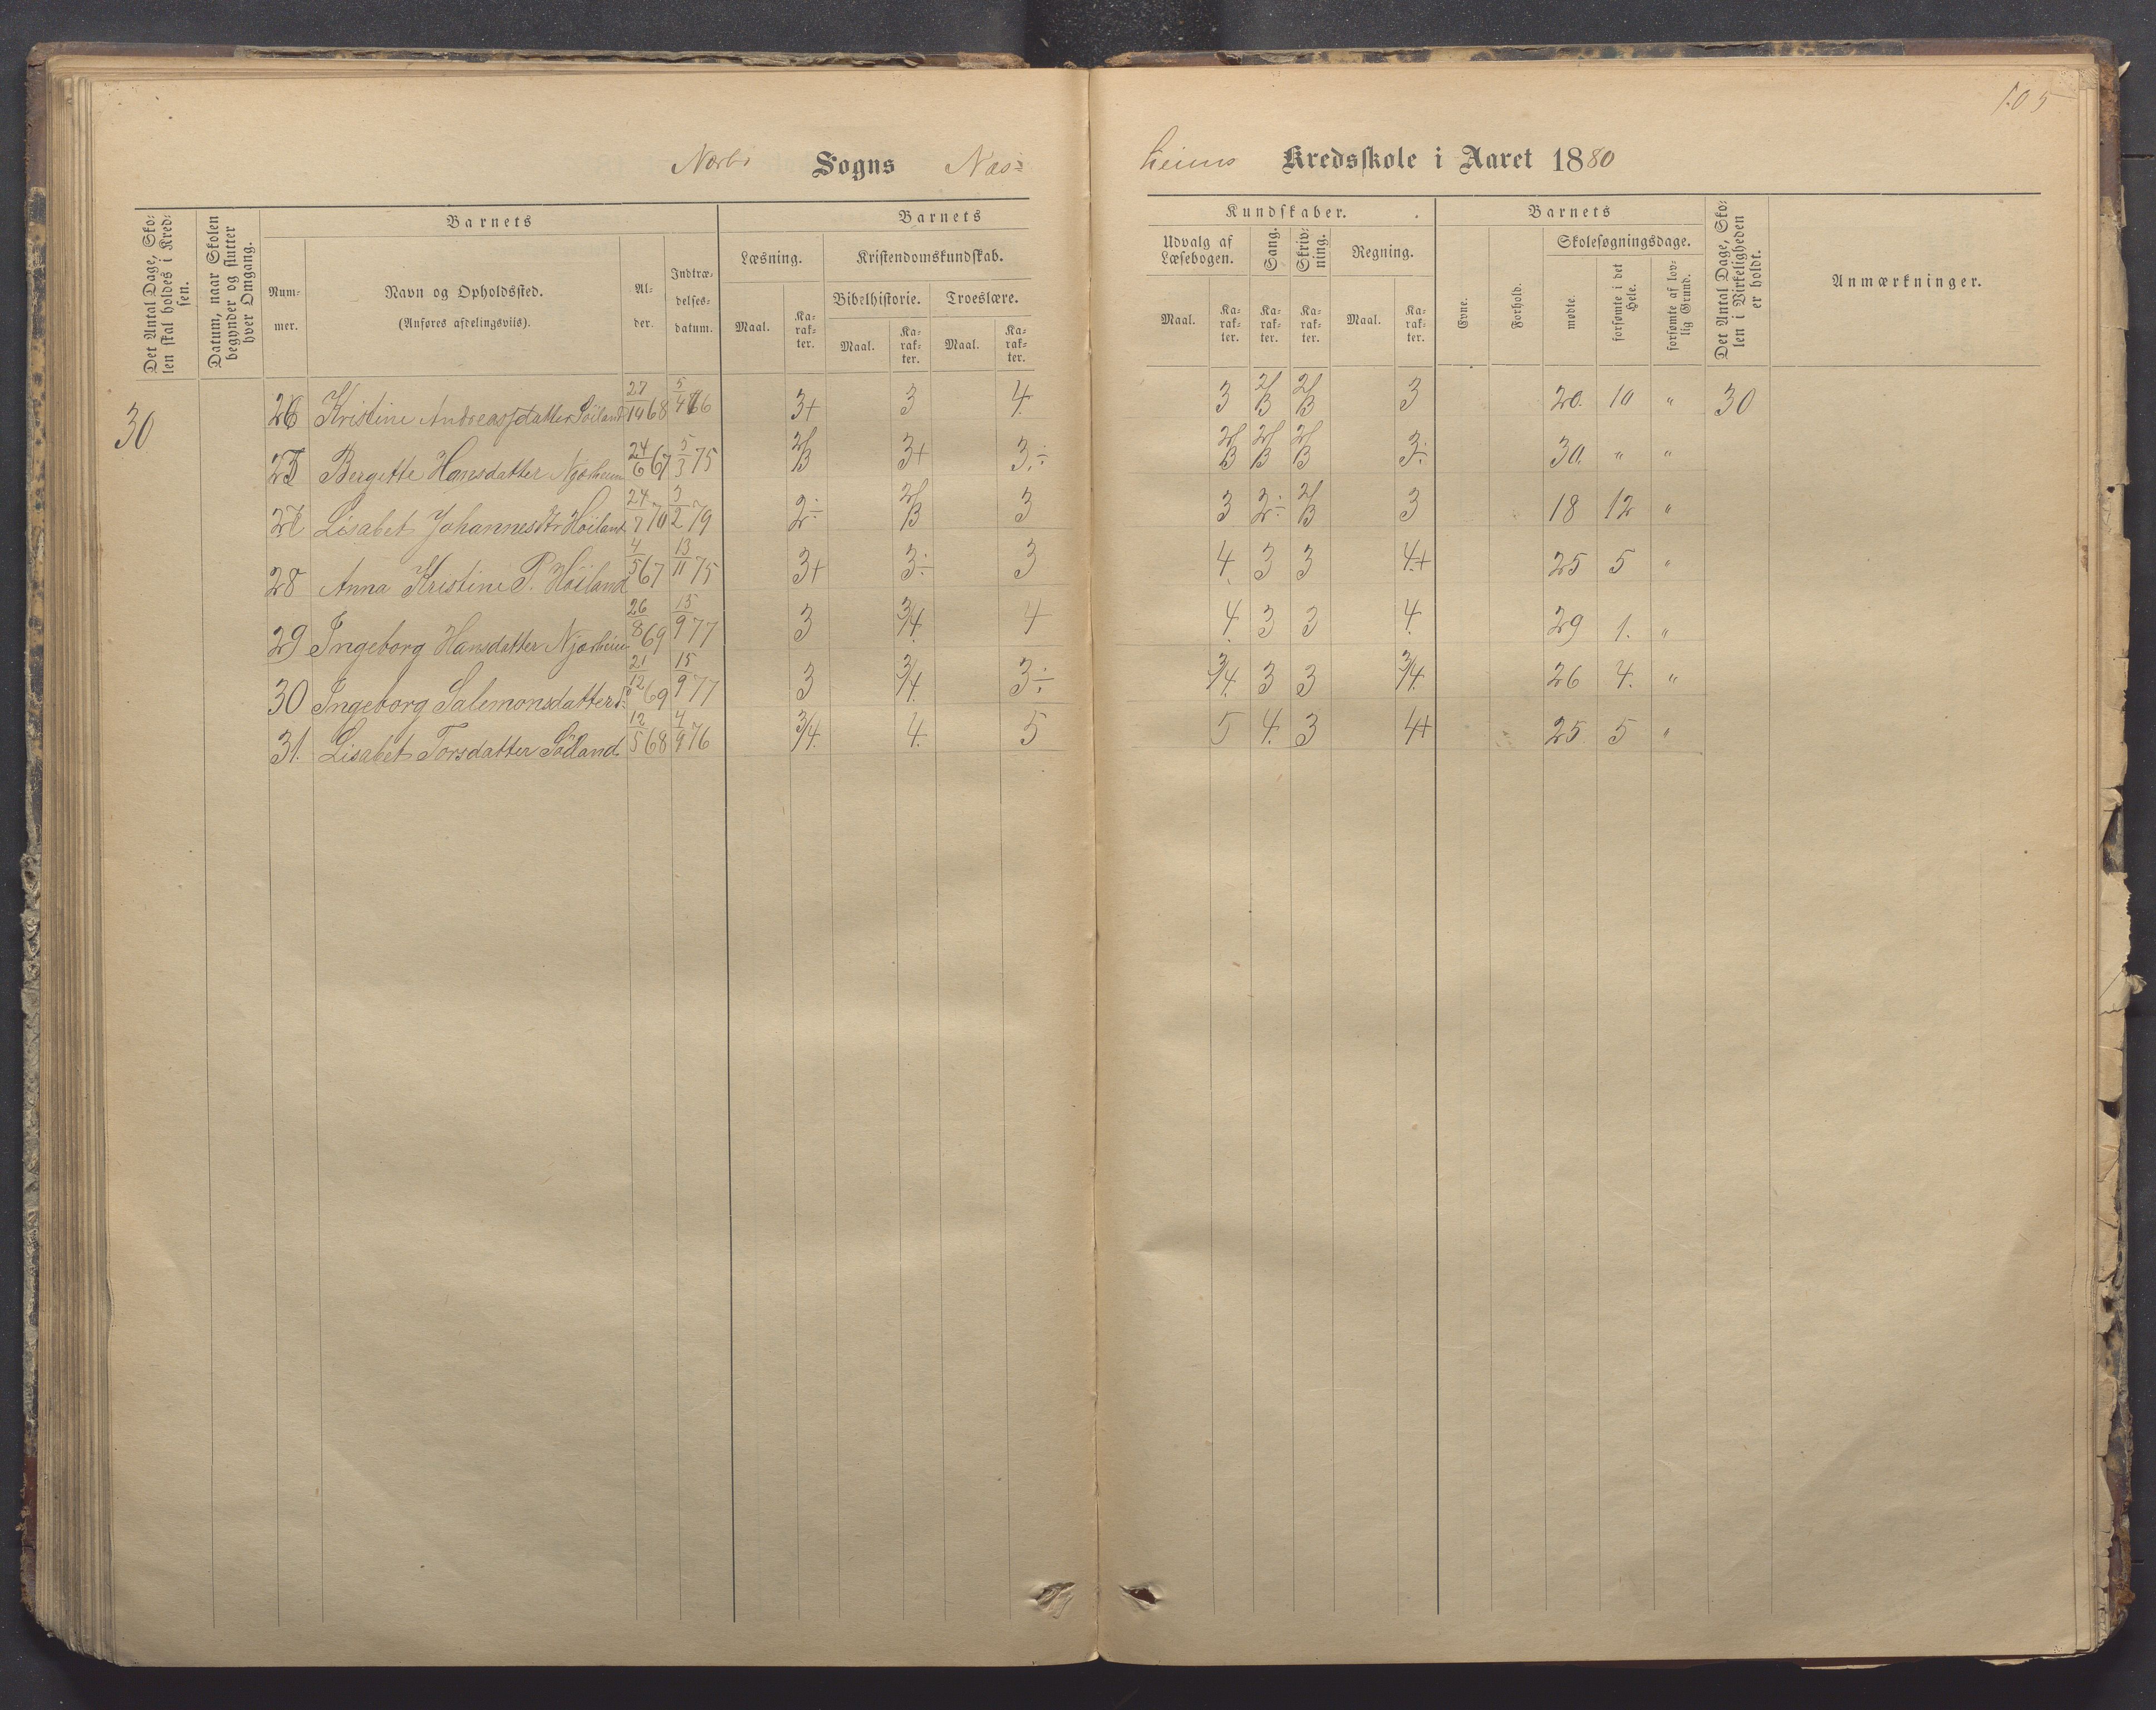 105
Nærbø Sogns Næs=
heims Kredsskole i Aaret 1880
Det Antal Dage, Sko-
len skal holdes i Kred-
sen.
Datum, naar Skolen
begynder og slutter
hver Omgang.
Barnets
Num-
mer.
Navn og Opholdssted.
(Anføres afdelingsviis).
Al-
der.
Indtræ-
delses-
datum.
Barnets
Læsning.
Kristendomskundskab.
Bibelhistorie.
Troeslære.
Maal.
Ka-
rak-
ter.
Maal.
Ka-
rak-
ter.
Maal.
Ka-
rak-
ter.
Kundskaber.
Udvalg af
Læsebogen.
Sang.
Skriv-
ning.
Regning.
Maal.
Ka-
rak-
ter.
Ka-
rak-
ter.
Ka-
rak-
ter.
Maal.
Ka-
rak-
ter.
Barnets
Evne.
Forhold.
Skolesøgningsdage.
mødte.
forsømte i det
Hele.
forsømte af lov-
lig Grund.
Det Antal Dage, Sko-
len i Virkeligheden
er holdt.
Anmærkninger.
30 26 Kristine Andreasdatter Söiland 68 3+ 3 4. 3 2/3 2/3 3 20. 10 " 30
Bergitte Hansdatter Njærheim 24/6 67 5/3 75 2/3 3+ 3.÷ 2/3 2/3 2/3 3÷ 30. " "
27 Lisabet Johannesdtr Höiland 24/7 70 3/2 79 2÷ 2/3 3 3 2÷ 2/3 3 18 12 "
28 Anna Kristine P. Höiland 4/5 67 13/11 75 3+ 3÷ 3 4. 3 3 4+ 25 5 "
29 Ingeborg Hansdatter Njærheim 26/8 69 15/9 77 3 3/4. 4 4. 3 3 4. 29 1. "
30 Ingeborg Salemonsdatter 21/12 69 15/9 77 3 3/4. 3÷ 3/4. 3 3 3/4. 26 4. "
31. Lisabet Torsdatter Söiland 12/5 68 4/9 76 3/4. 4. 5 5 4. 3 4+ 25 5 "